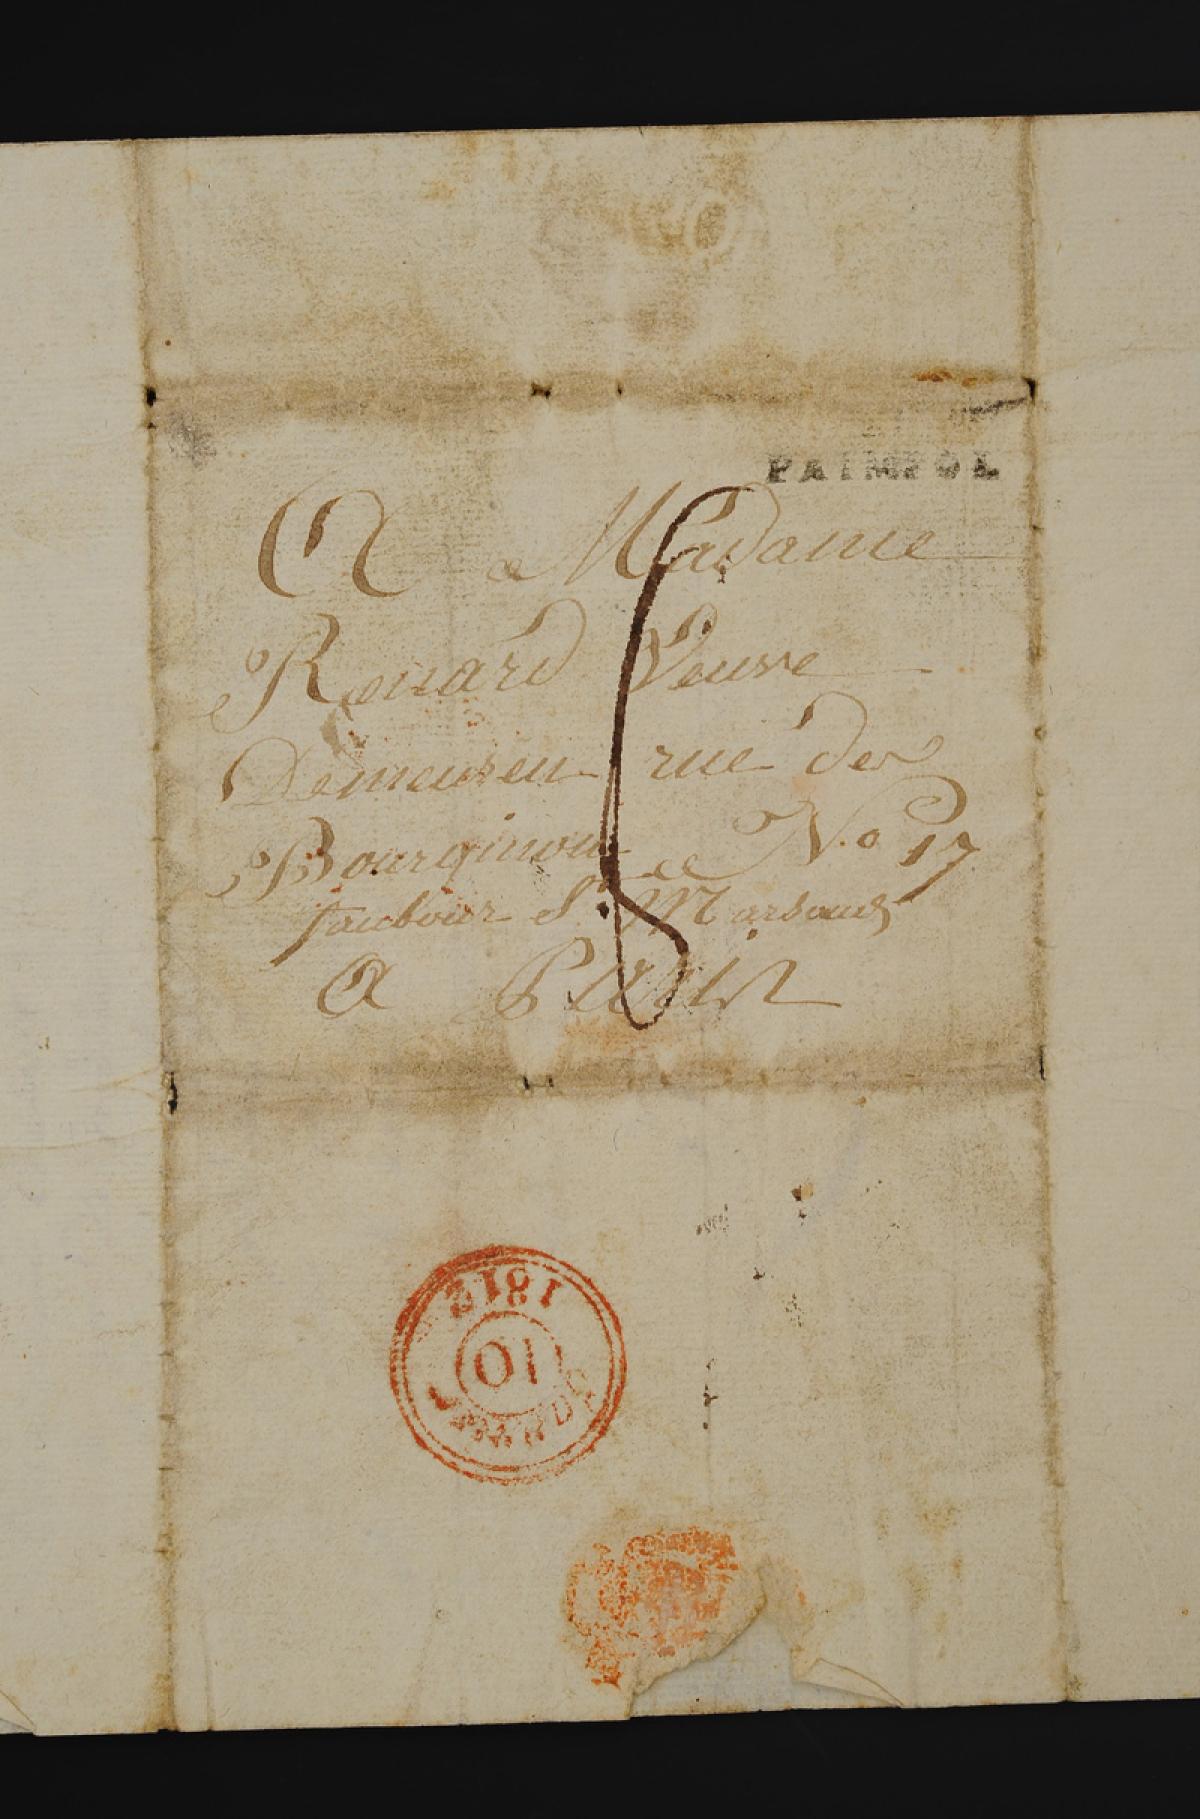 PAIMPOL
A a Madame
Renard Veuve
Demeuren rue des
Bourginon N.o 17
faubour St Marsaus
A Paris
1812
10